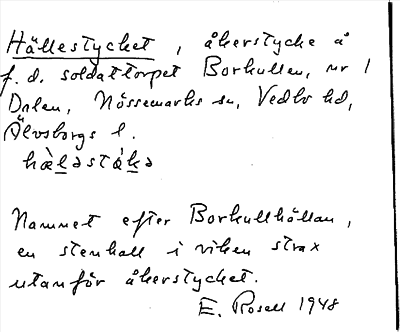 Hällestycket, åkerstycke å
f. d. soldattorpet Borkullen, nr 1
Dalen, Nössemarks sn, Vedbo hd,
Älvsborgs l.
hæ̀lǝsták̲ǝ
Namnet efter Borkullhällan,
en stenhall i viken strax
utanför åkerstycket.
E. Rosell 1948